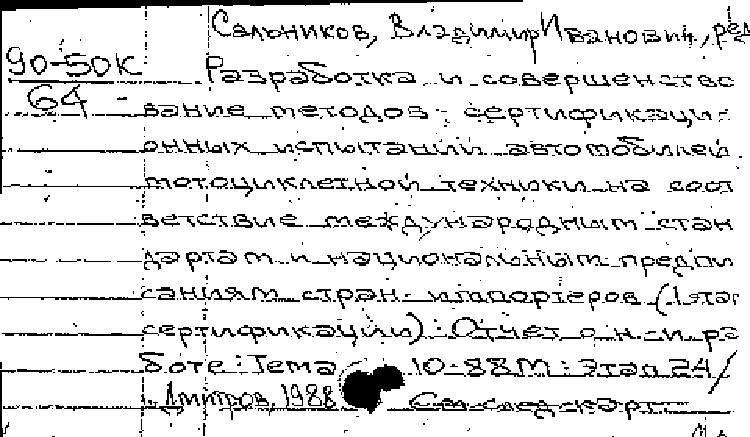 Сальников, Владимир Иванович, ред
90-50К
64
Разработка и совершенство
вание методов сертификаци-
онных испытаний автомобилей
мотоциклетной техники на соот
ветствие международным стан
дартам и национальным предпи
саниям стран-импортеров (1 этап
сертификации): Отчет о н.-и. ра
боте: Тема 10-88М: Этап 24/
г. Дмитров, 1988
См. след. карт.